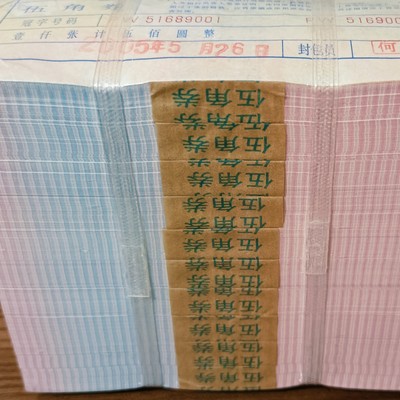 伍角券
冠字号码 W 51689001 51689001
壹仟张计伍佰圆整
2005年5月26日 封包员 何
伍角券
伍角券
伍角券
伍角券
伍角券
伍角券
伍角券
伍角券
伍角券
伍角券
伍角券
伍角券
伍角券